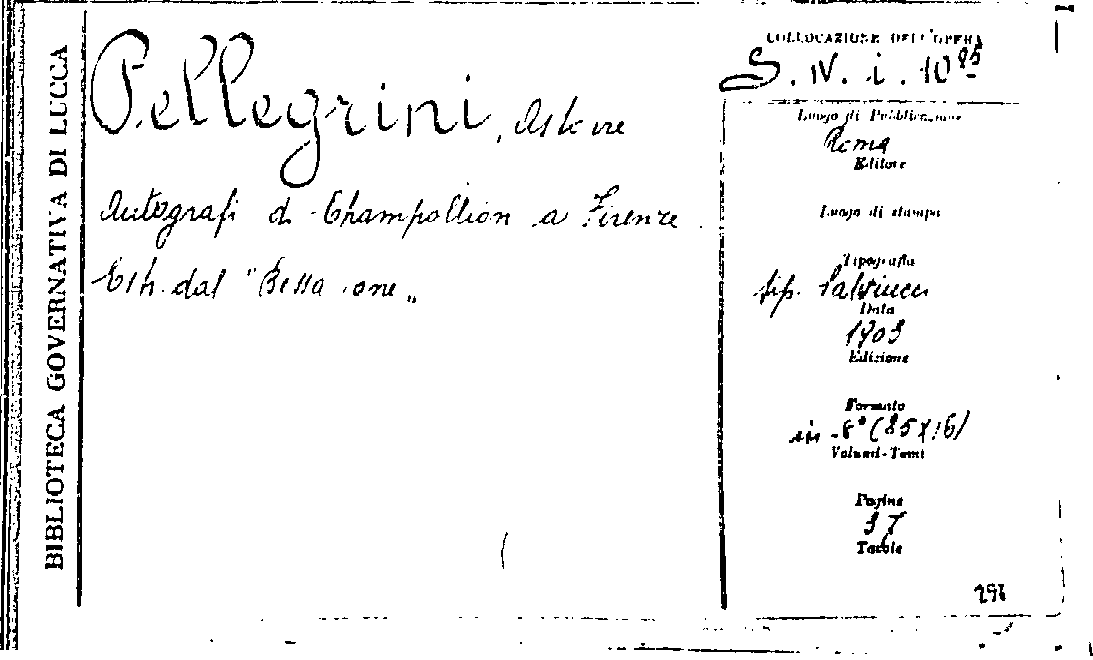 BIBLIOTECA GOVERNATIVA DI LUCCA
Pellegrini, Astorre
Autografi di Champollion a Firenze
Estr. dal "Bessarione„
COLLOCAZIONE DELL'OPERA
S. IV. i. 10
Luogo di Pubblicazione
Roma
Editore
Luogo di stampa
Tipografia
tip. Salviucci
Data
1903
Edizione
Formato
in-8° (25×16)
Volumi-Tomi
Pagine
37
Tavole